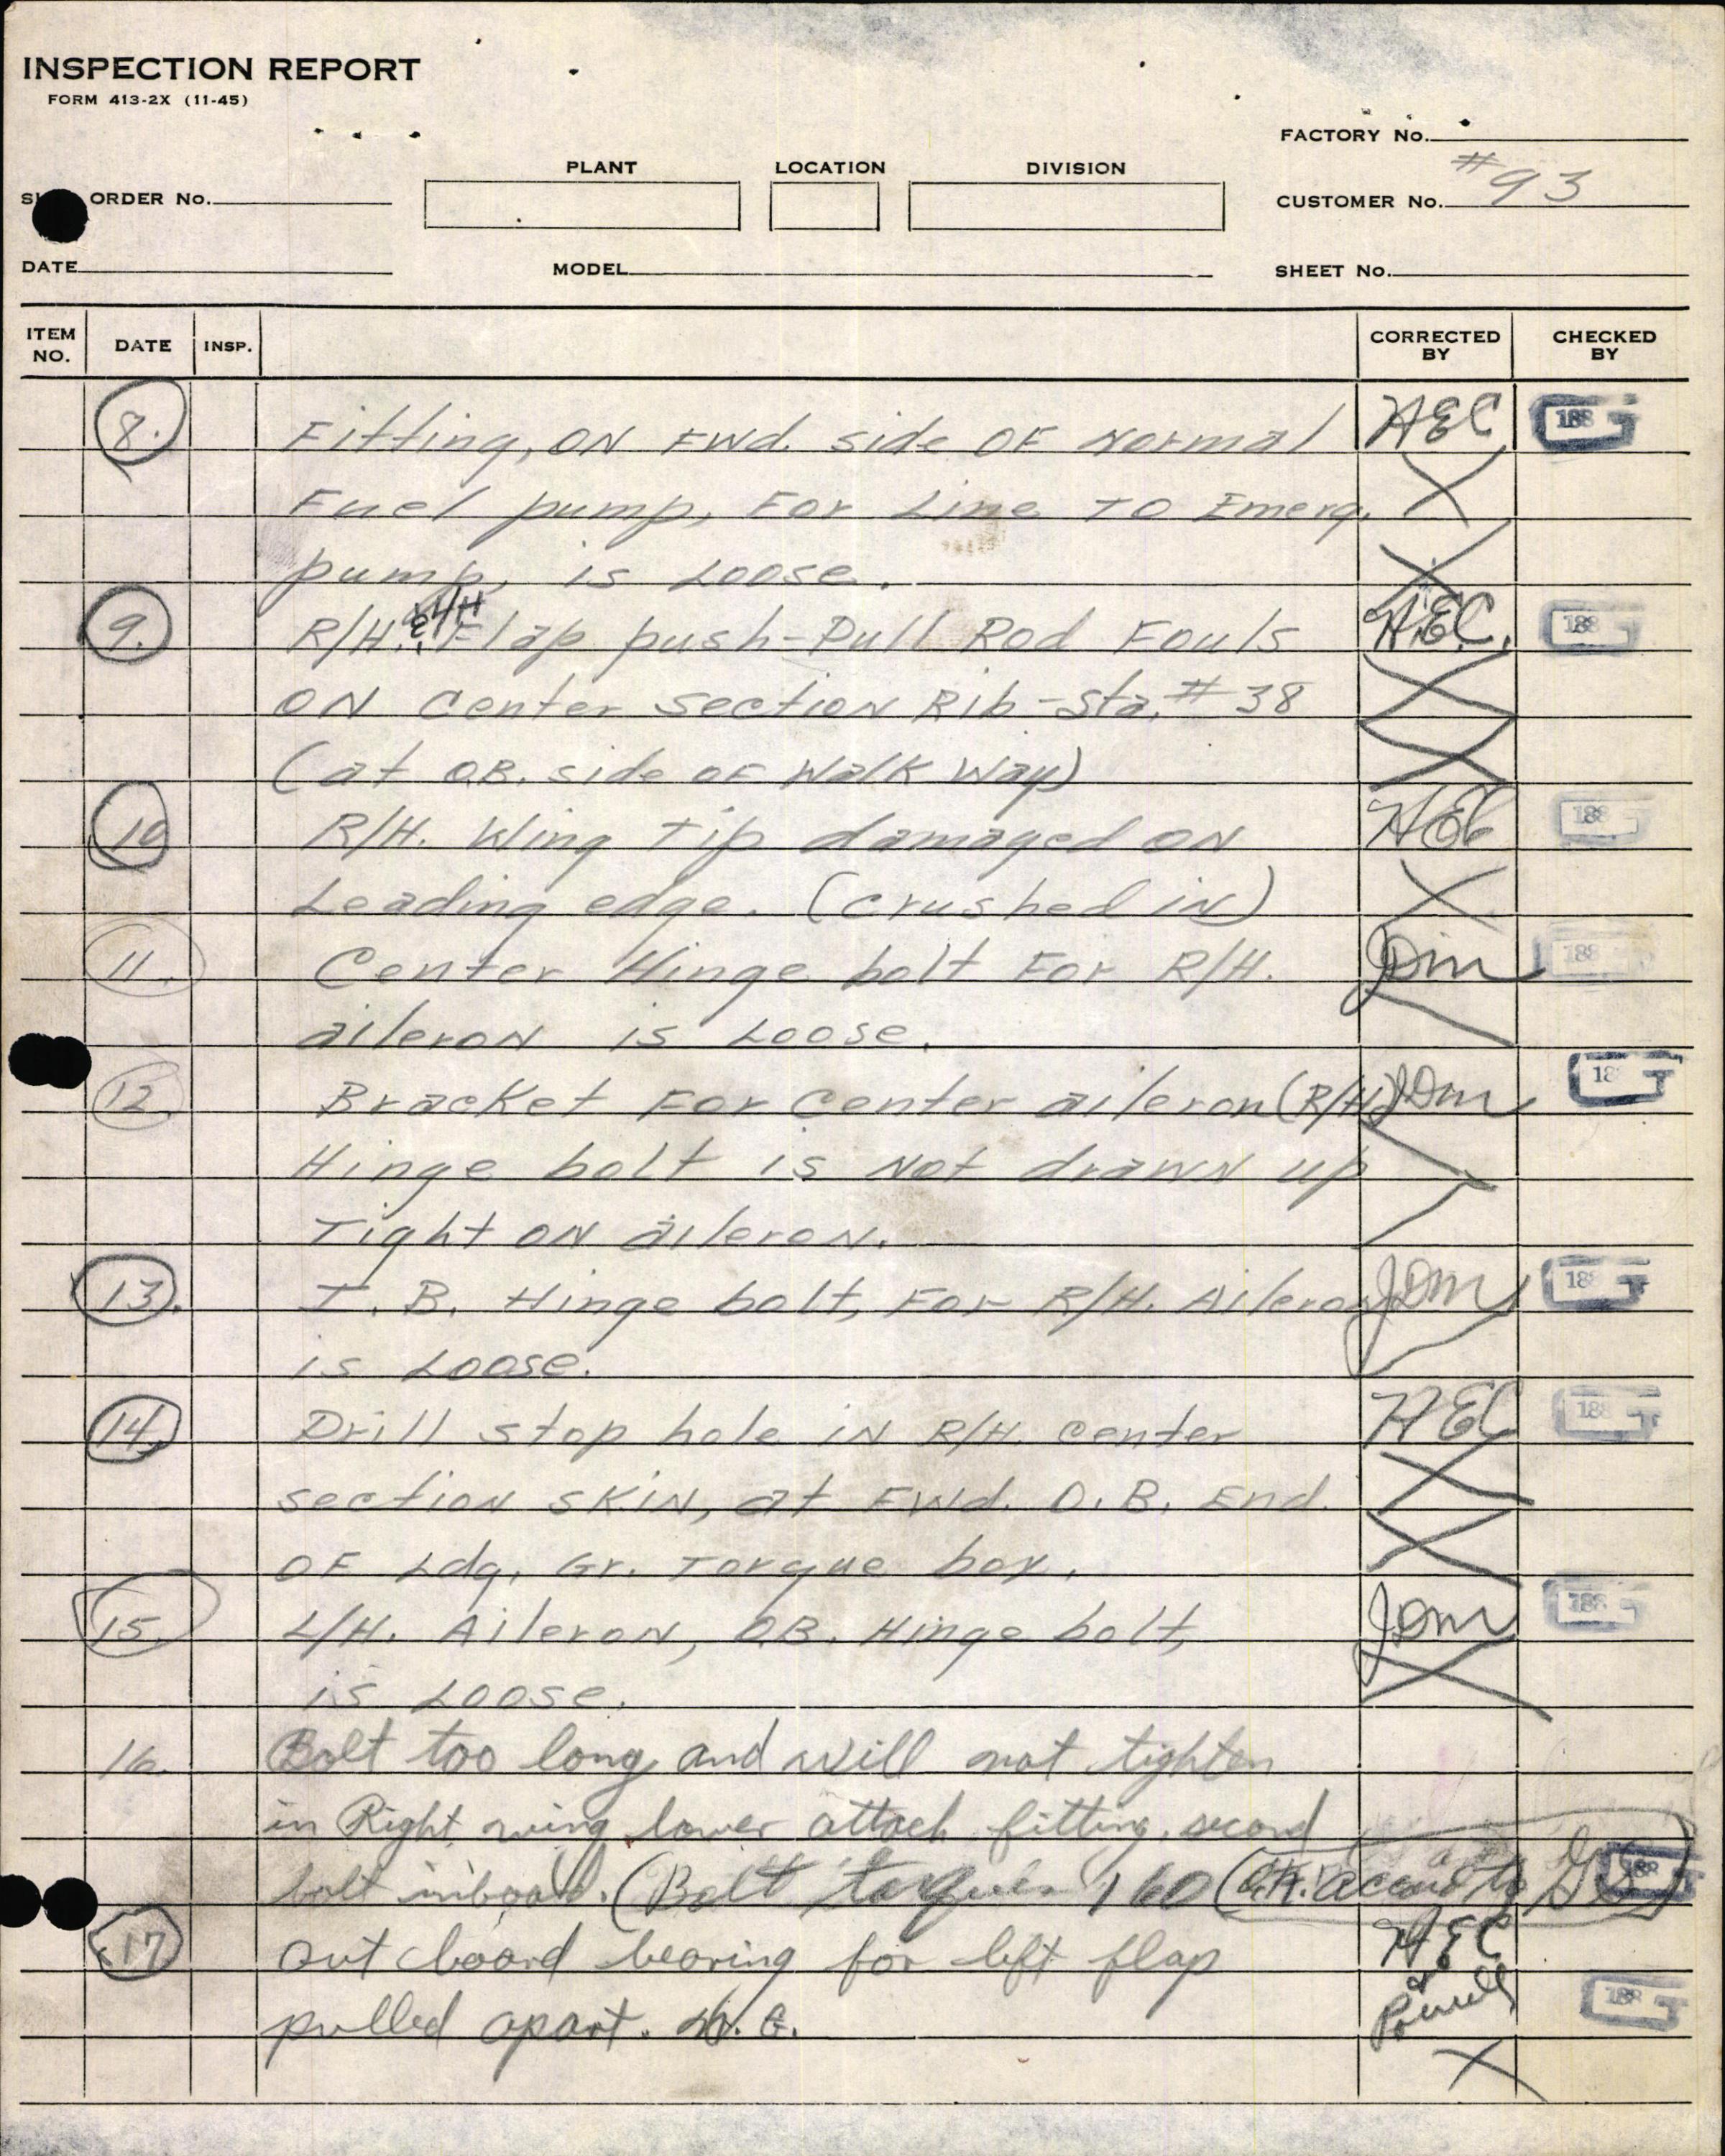 INSPECTION REPORT
FORM 413-2X (11-45)
FACTORY No.
PLANT LOCATION DIVISION
ORDER No.
CUSTOMER No. #93
DATE MODEL SHEET No.
ITEM NO. DATE INSP. CORRECTED BY CHECKED BY
8. Fitting, ON FWd. side OF Normal HEC 188
Fuel pump, For Line TO Emerg.
pump, is Loose.
9. R/H. & L/H Flap push-Pull Rod Fouls H.E.C. 188
ON Center section Rib-Sta. #38
(at O.B. side OF Walk Way)
10 R/H. Wing Tip damaged ON HEC 188
Leading edge. (crushed in)
11. Center Hinge bolt For R/H. JDM 188
aileron is Loose.
12. Bracket For Center aileron (R/H) JDM 18
Hinge bolt is Not drawn up
Tight ON aileron.
13. I.B. Hinge bolt, For R/H. Aileron JDM 188
is Loose.
14. Drill stop hole in R/H. Center HEC 188
section SKIN, at FWd. O.B. End
OF Ldg. Gr. Torque box.
15. L/H. Aileron, O.B. Hinge bolt, JDM 188
is Loose.
16. Bolt too long and will not tighten
in Right wing lower attach fitting, second
bolt inboard. (Bolt torques 160 188
17 out board bearing for left flap HEC
pulled apart. & Powell 188